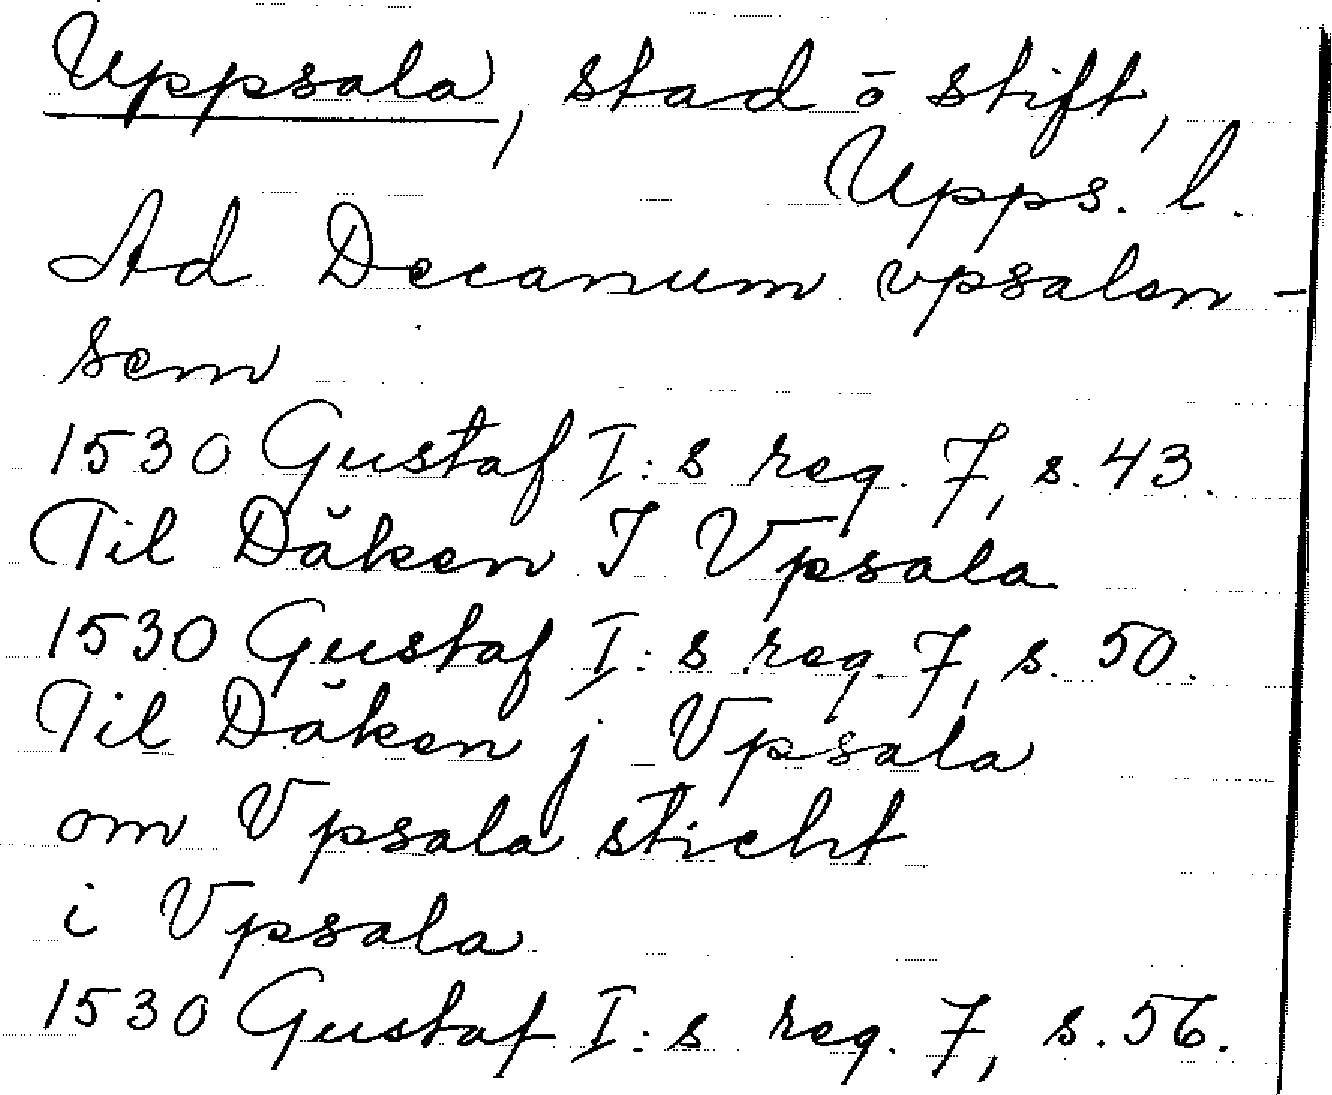 Uppsala, stad o stift,
Upps. l.
Ad Decanum vpsalen-
sem
1530 Gustaf I:s reg. 7, s. 43.
Til Däken I Vpsala
1530 Gustaf I:s reg. 7, s. 50.
Til Däken j Vpsala
om Vpsala sticht
i Vpsala
1530 Gustaf I:s reg. 7, s. 56.